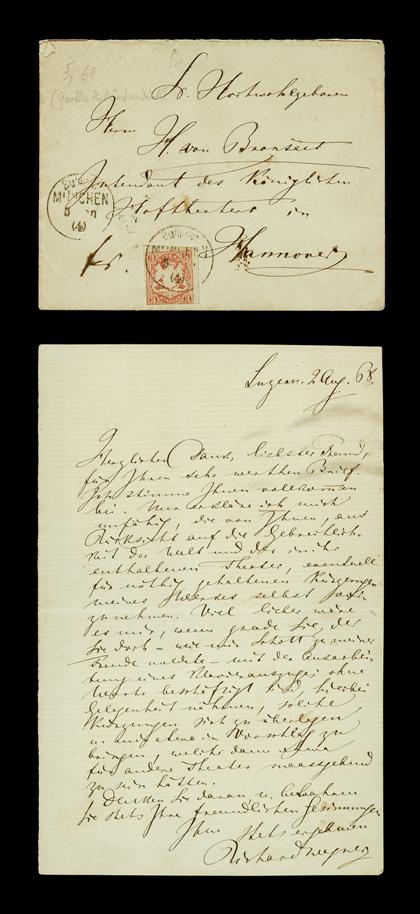 5/1 68
Sr. Hochwohlgeboren
Herrn
H. von Bronsart
Intendant des Königlichen
MÜNCHEN
Hoftheaters in
fr.
Hannover
Luzern. 2 Aug. 68.
Herzlichen Dank, liebster Freund,
für Ihren sehr werthen Brief.
Ich stimme Ihnen vollkommen
bei. Nur erkläre ich mich
unfähig, die von Ihnen, aus
Rücksicht auf die Gebrechlich-
keit der Welt und der in ihr
enthaltenen Theater, eventuell
für nöthig gehaltenen Kürzungen
meines Werkes selbst vor-
zunehmen. Viel lieber wäre
es mir, wenn grade Sie, der
Sie doch – wie mir Schott zu meiner
Freude meldete – mit der Ausarbei-
tung eines Klavierauszuges ohne
Worte beschäftigt sind, hierbei
Gelegenheit nähmen, solche
Kürzungen sich zu überlegen
u. mir etwa in Vorschlag zu
bringen, welche dann
für andere Theater maassgebend
zu sein hätten.
Denken Sie daran u. bewahren
Sie stets Ihre freundlichen Gesinnungen
Ihrem stets ergebenen
Richard Wagner